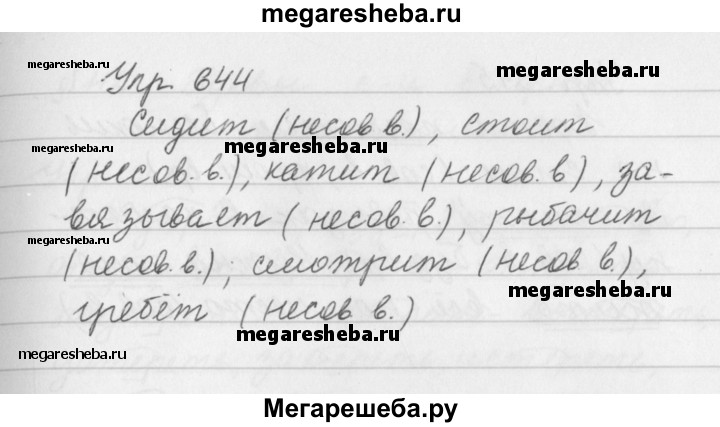 megaresheba.ru
Упр. 644
megaresheba.ru
megaresheba.ru
Сидит (несов в.), стоит
megaresheba.ru
megaresheba.ru
(несов. в.), катит (несов. в), за-
вязывает (несов. в.), рыбачит
megaresheba.ru
megaresheba.ru
(несов. в.), смотрит (несов в.),
megaresheba.ru
гребёт (несов в.)
megaresheba.ru
megaresheba.ru
Мегарешеба.ру